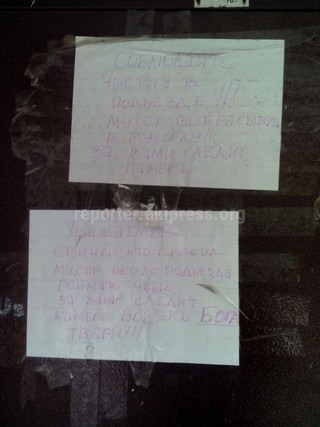 СОБЛЮДАЙТЕ
ЧИСТОТУ В
ПОДЬЕЗДЕ!!!
МУСОР ВЫБРАСЫВАТЬ
В МУСОРКУ!!!
ЗА ВАМИ СЛЕДИТ
КАМЕРА
reporter.akipress.org
УВАЖАЕМЫЕ
СВИНЬИ КТО БРОСИЛ
МУСОР ОКОЛО ПОДЬЕЗДА
ПОЙМАЮ УБЬЮ
ЗА ВАМИ СЛЕДИТ
КАМЕРА БОЙТЕСЬ БОГА
ТВАРИ!!!